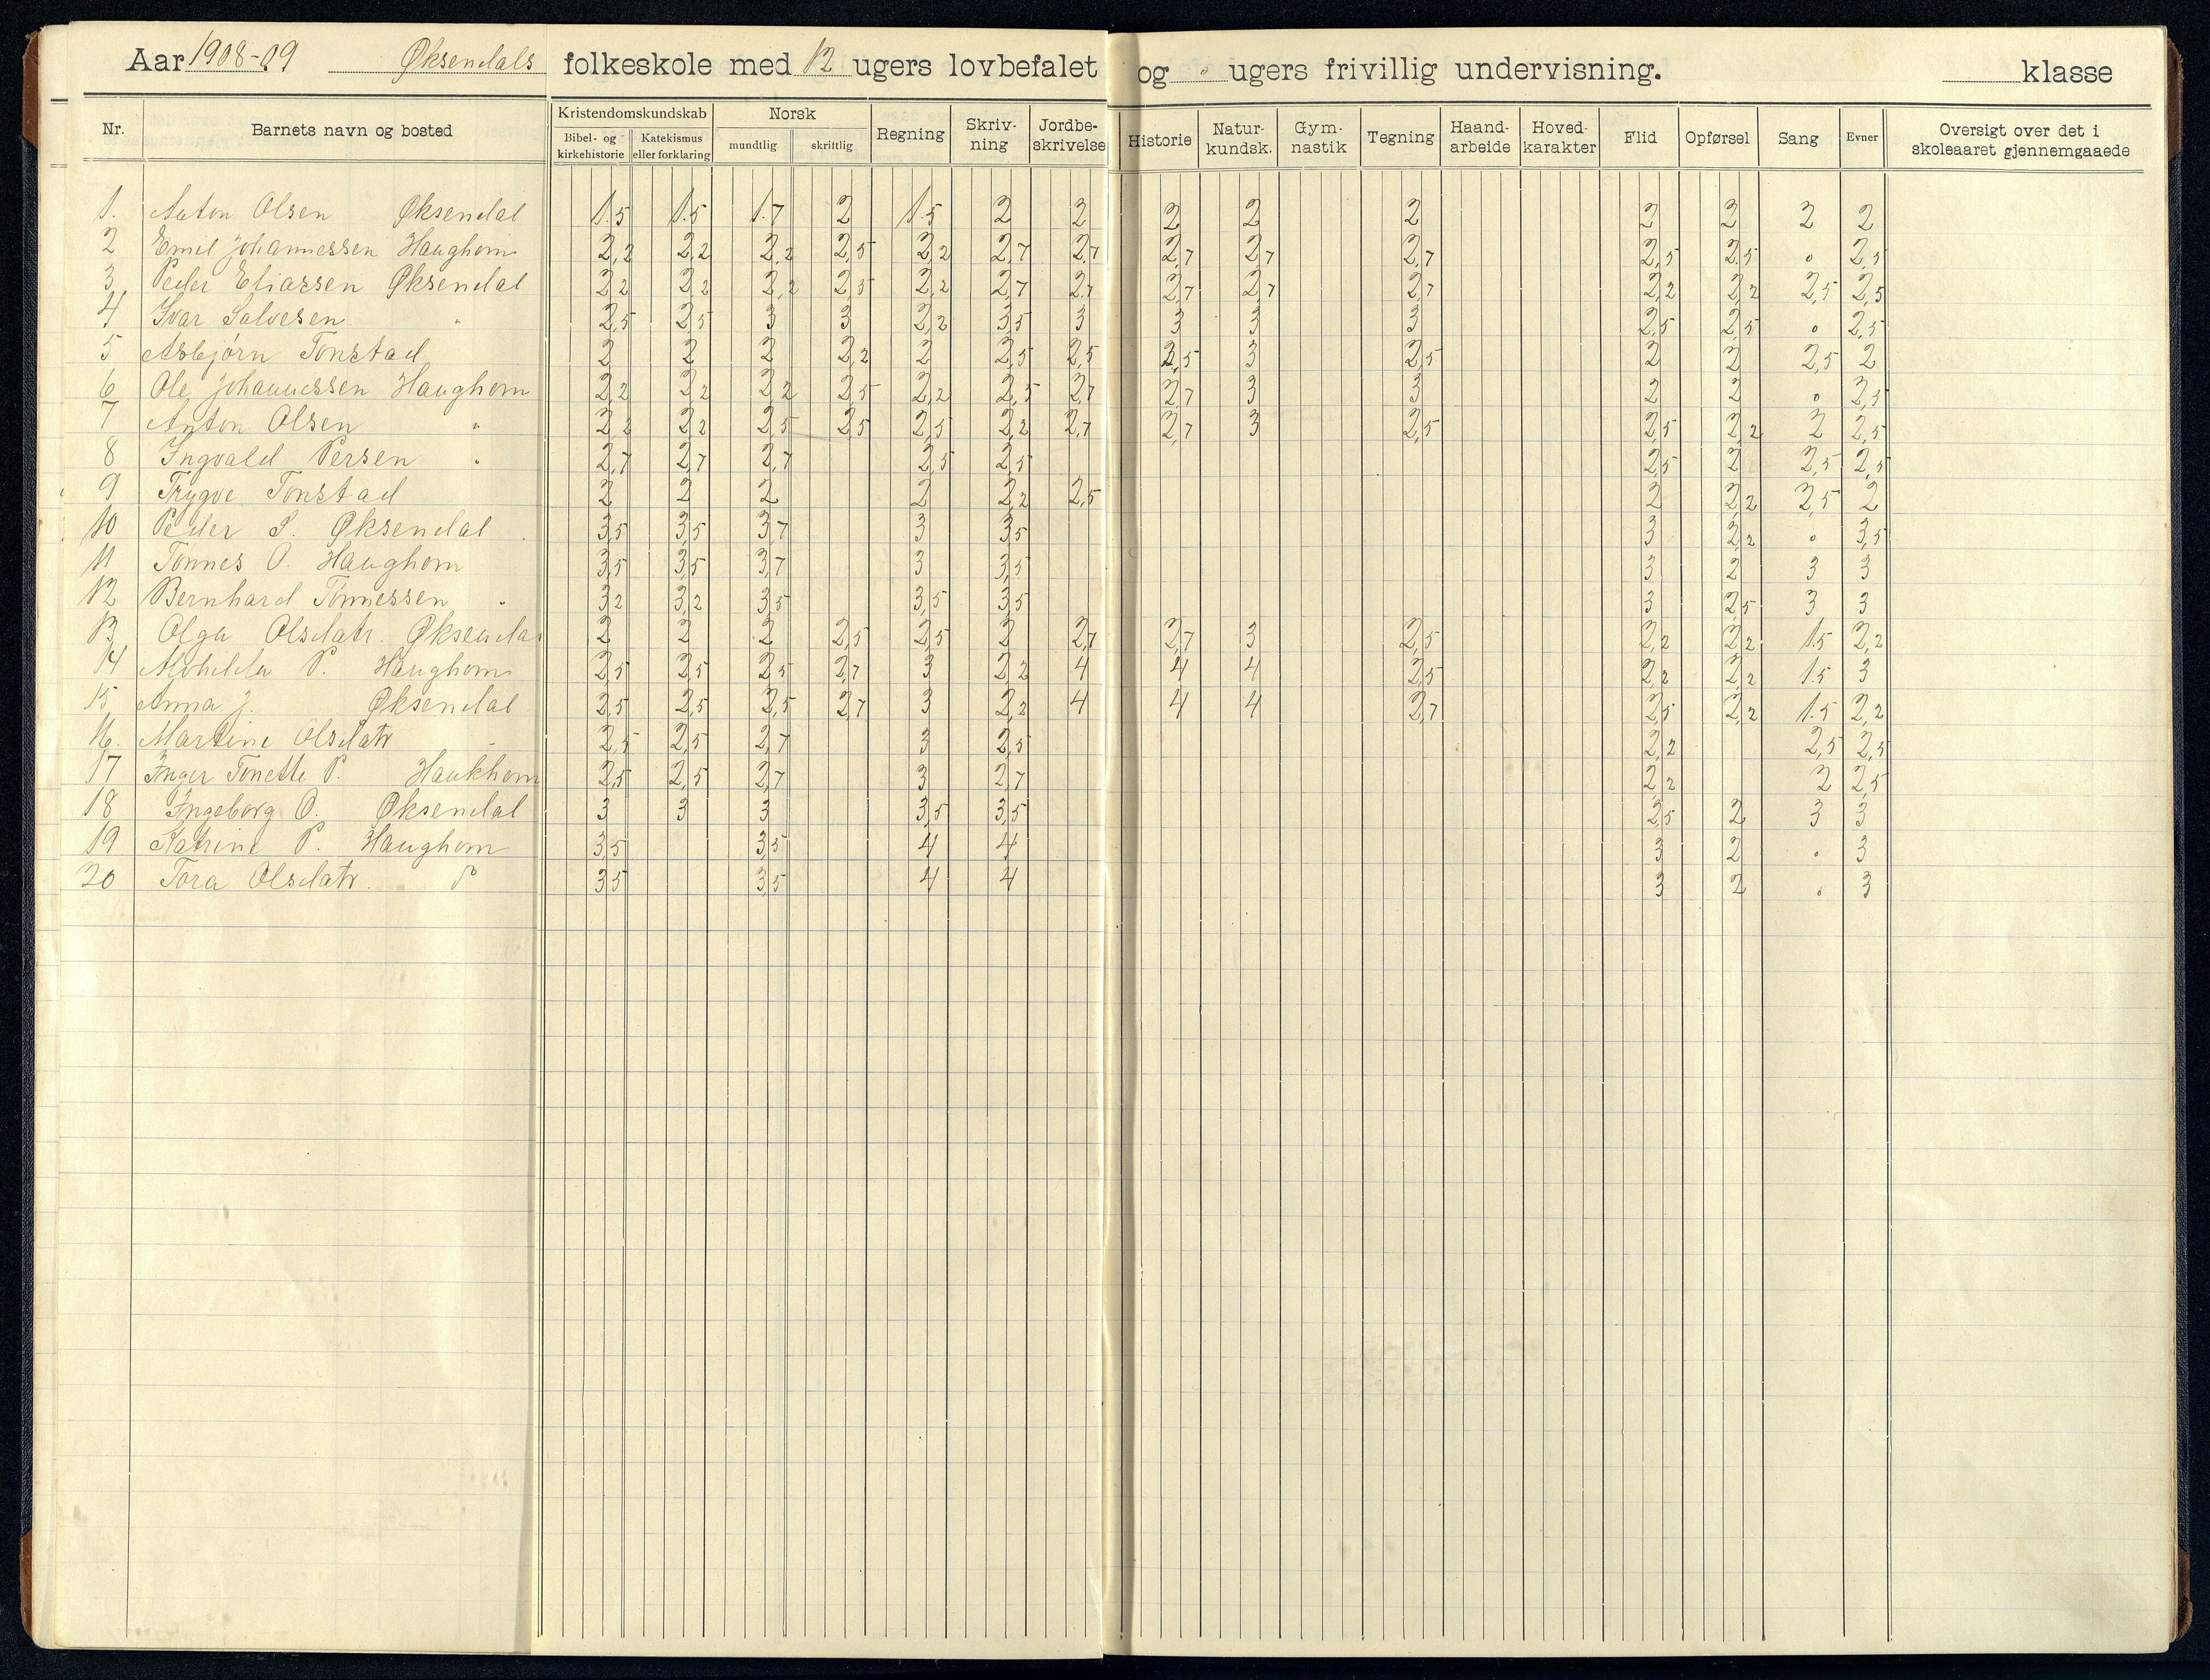 Aar 1908-09 Øksendals folkeskole med 12 ugers lovbefalet og 0 ugers frivillig undervisning. klasse
Nr. Barnets navn og bosted Kristendomskundskab Bibel- og kirkehistorie Katekismus eller forklaring Norsk mundtlig skriftlig Regning Skriv-ning Jordbe-skrivelse Historie Natur-kundsk. Gym-nastik Tegning Haand-arbeide Hoved-karakter Flid Opførsel Sang Evner Oversigt over det i skoleaaret gjennemgaaede
1. Anton Olsen Øksendal 1.5 1.5 1.7 2 1.5 2 2 2 2 2 2 2 2 2
2 Emil Johannessen Haughom 2,2 2,2 2,2 2,5 2,2 2,7 2,7 2,7 2,7 2,7 2,5 2,5 0 2,5
3 Peder Eliassen Øksendal 2,2 2,2 2,2 2,5 2,2 2,7 2,7 2,7 2,7 2,7 2,2 2,2 2,5 2,5
4 Ivar Salvesen " 2,5 2,5 3 3 2,2 3,5 3 3 3 3 2,5 2,5 0 2,5
5 Asbjørn Tonstad 2 2 2 2,2 2 2,5 2,5 2,5 3 2,5 2 2 2,5 2
6 Ole Johannessen Haughom 2,2 2,2 2,2 2,5 2,2 2,5 2,7 2,7 3 3 2 2 0 2,5
7 Anton Olsen " 2,2 2,2 2,5 2,5 2,5 2,2 2,7 2,7 3 2,5 2,5 2,2 2 2,5
8 Ingvald Persen " 2,7 2,7 2,7 2,5 2,5 2,5 2 2,5 2,5
9 Trygve Tonstad 2 2 2 2 2,2 2,5 2 2,2 2,5 2
10 Peder S. Øksendal 3,5 3,5 3,7 3 3,5 3 2,2 0 3,5
11 Tønnes O. Haughom 3,5 3,5 3,7 3 3,5 3 2 3 3
12 Bernhard Tønnessen " 3,2 3,2 3,5 3,5 3,5 3 2,5 3 3
13 Olga Olsdatr. Øksendal 2 2 2 2,5 2,5 2 2,7 2,7 3 2,5 2,2 2,2 1.5 2,2
14 P. Haughom 2,5 2,5 2,5 2,7 3 2,2 4 4 4 2,5 2,2 2,2 1.5 3
15 Anna J. Øksendal 2,5 2,5 2,5 2,7 3 2,2 4 4 4 2,7 2,5 2,2 1.5 2,2
16. Martine Olsdatr " 2,5 2,5 2,7 3 2,5 2,2 2,5 2,5
17 Inger Tonette P. Haukhom 2,5 2,5 2,7 3 2,7 2,2 2 2,5
18 Ingeborg O. Øksendal 3 3 3 3,5 3,5 2,5 2 3 3
19 Katrine P. Haughom 3,5 3,5 4 4 3 2 0 3
20 Tora Olsdatr. do 3,5 3,5 4 4 3 2 0 3